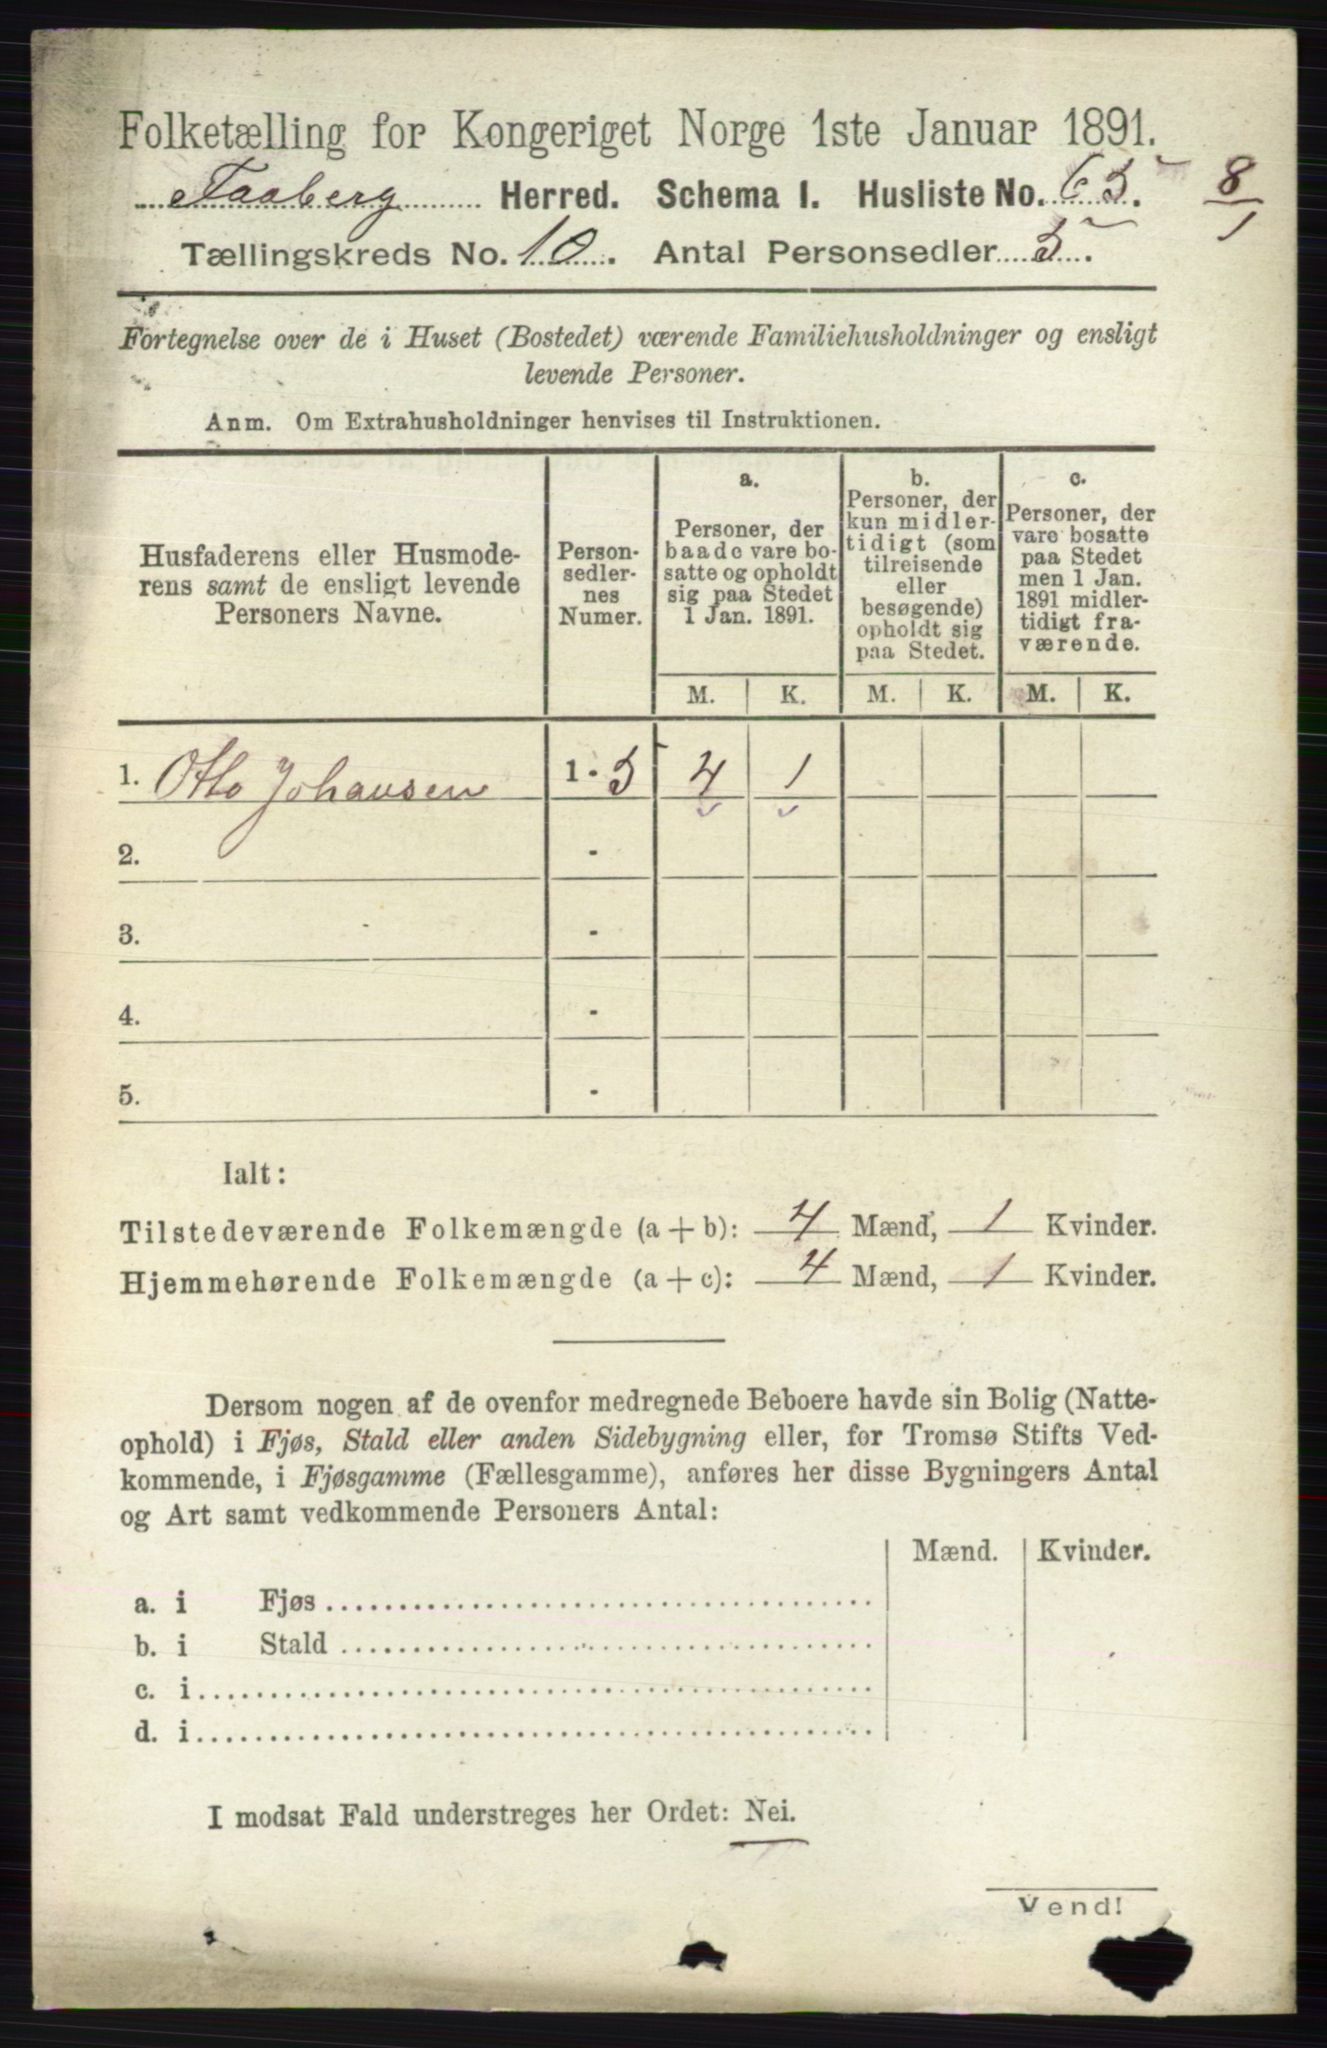 Folketælling for Kongeriget Norge 1ste Januar 1891.
Faaberg Herred. Schema I. Husliste No. 65.
8/1
Tællingskreds No. 10. Antal Personsedler 5.
Fortegnelse over de i Huset (Bostedet) værende Familiehusholdninger og ensligt
levende Personer.
Anm. Om Extrahusholdninger henvises til Instruktionen.
Husfaderens eller Husmode-
rens samt de ensligt levende
Personers Navne.
Person-
sedler-
nes
Numer.
a.
Personer, der
baade vare bo-
satte og opholdt
sig paa Stedet
1 Jan. 1891.
b.
Personer, der
kun midler-
tidigt (som
tilreisende
eller
besøgende)
opholdt sig
paa Stedet.
c.
Personer, der
vare bosatte
paa Stedet
men 1 Jan.
1891 midler-
tidigt fra-
værende.
M. K. M. K. M. K.
1. Otto Johansen 1 - 5 4 1
2. -
3. -
4. -
5. -
Ialt:
Tilstedeværende Folkemængde (a + b): 4 Mænd, 1 Kvinder.
Hjemmehørende Folkemængde (a + c): 4 Mænd, 1 Kvinder.
Dersom nogen af de ovenfor medregnede Beboere havde sin Bolig (Natte-
ophold) i Fjøs, Stald eller anden Sidebygning eller, for Tromsø Stifts Ved-
kommende, i Fjøsgamme (Fællesgamme), anføres her disse Bygningers Antal
og Art samt vedkommende Personers Antal:
Mænd. Kvinder.
a. i Fjøs
b. i Stald
c. i
d. i
I modsat Fald understreges her Ordet: Nei.
Vend!